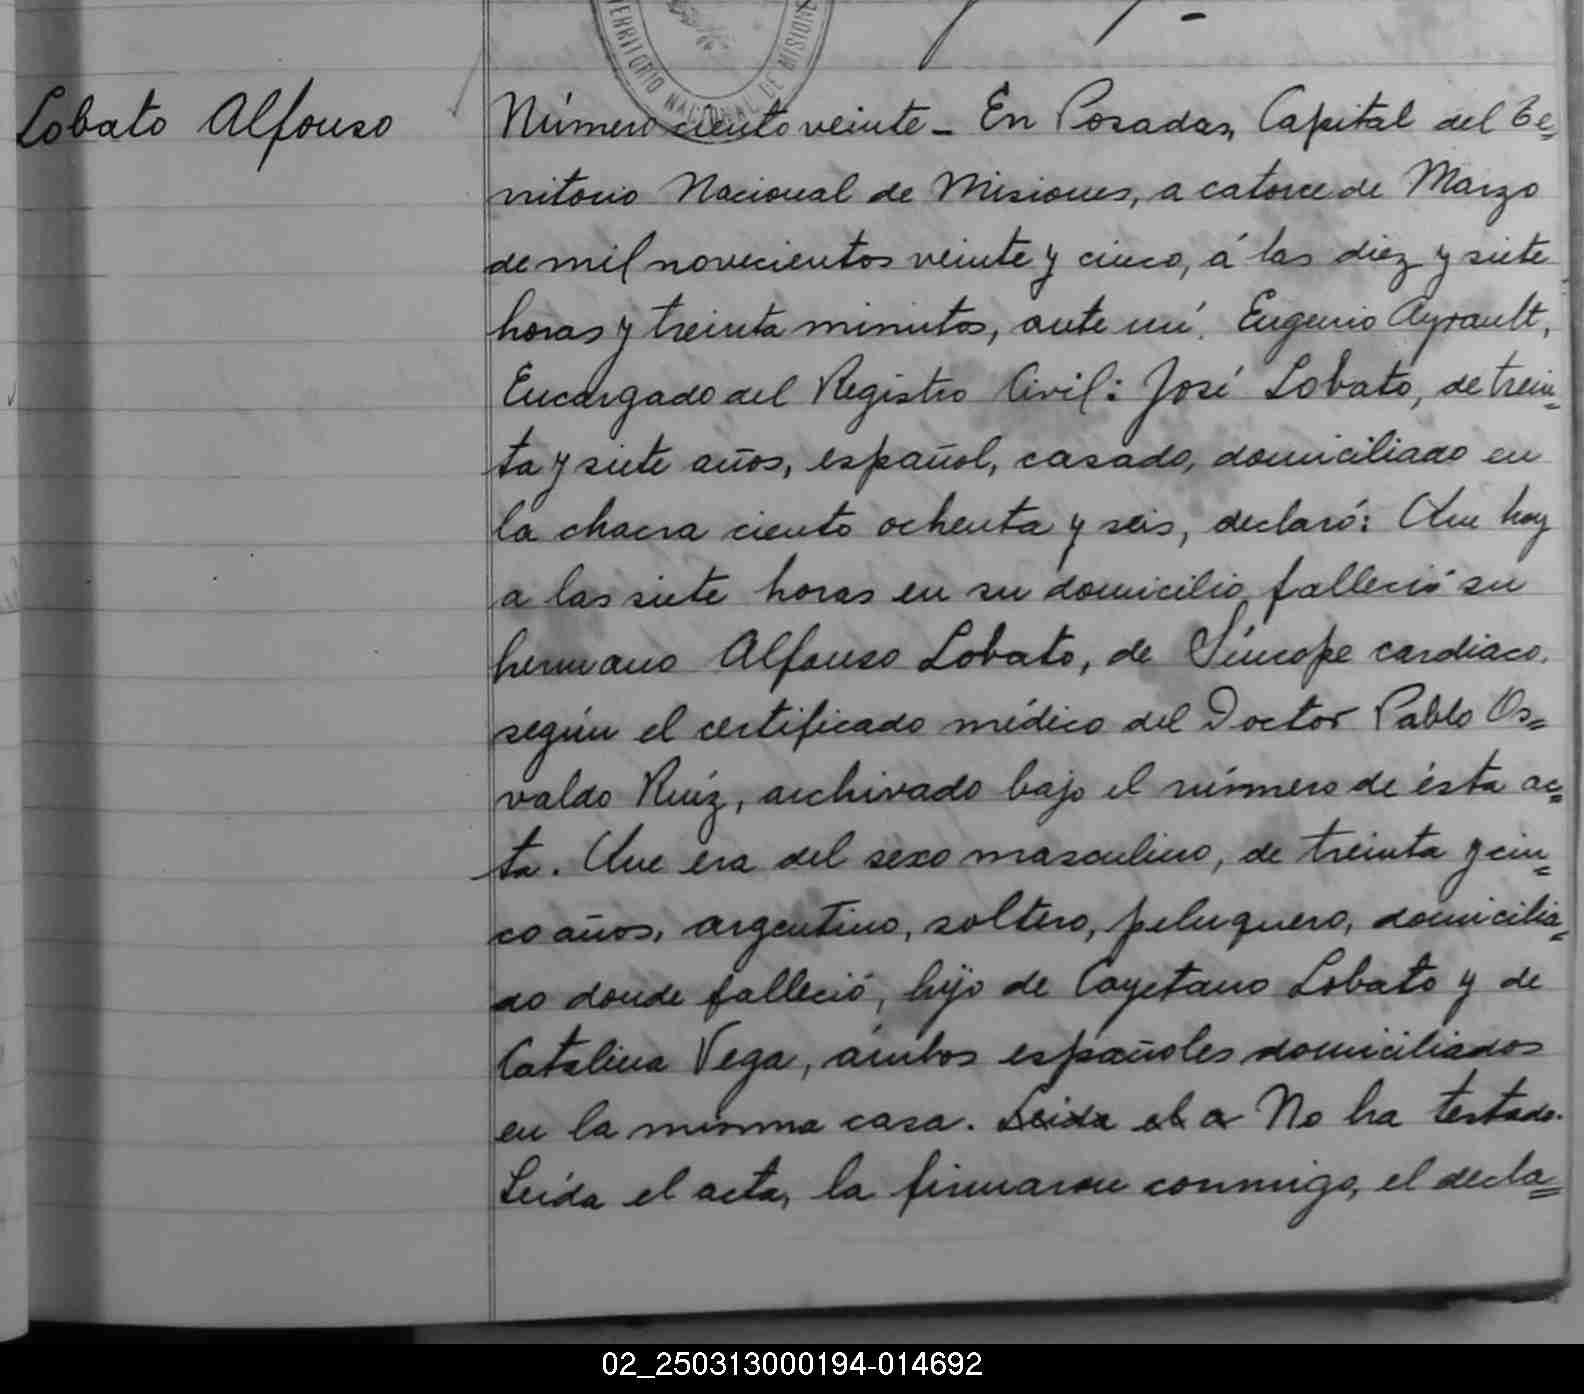 TERRITORIO NACIONAL DE MISIONES
Lobato Alfonso
Número ciento veinte - En Posadas, Capital del Te=
rritorio Nacional de Misiones, a catorce de Marzo
de mil novecientos veinte y cinco, á las diez y siete
horas y treinta minutos, ante mí. Eugenio Ayrault,
Encargado del Registro Civil: José Lobato, de trein=
ta y siete años, español, casado, domiciliado en
la chacra ciento ochenta y seis, declaró: Que hoy
a las siete horas en su domicilio falleció su
hermano Alfonso Lobato, de Síncope cardiaco,
según el certificado médico del Doctor Pablo Os=
valdo Ruíz, archivado bajo el número de ésta ac=
ta. Que era del sexo masculino, de treinta y cin=
co años, argentino, soltero, peluquero, domicilia=
do donde falleció, hijo de Cayetano Lobato y de
Catalina Vega, ámbos españoles domiciliados
en la misma casa. Leida el a No ha testado.
Leída el acta, la firmaron conmigo, el decla=
02_250313000194-014692